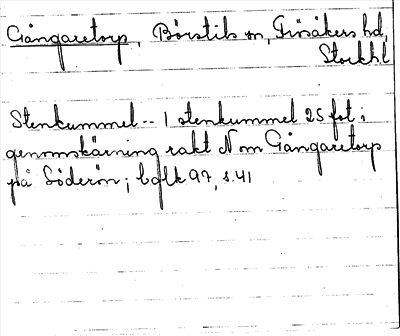 Gångaretorp, Börstils sn, Frösåkers hd,
Stockh l
Stenkummel -- 1 stenkummel 25 fot i
genomskärning rakt N om Gångaretorp
på Söderön; bqlk 97, s. 41